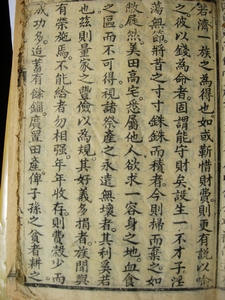 若濟一族之為得也如或靳惜財費則更有說以喻
之彼以錢為命者固謂能守財矣設生一不才子淫
蕩無餽將昔之寸寸銖銖而積者今則掃而棄之如
敝屣然美田高宅悉屬他人欲求一容身之地血食
之區而不可得視諸祭產之永遠無壞者其利奚若
也茲則量家之豐儉以為規其好義多捐者族閒興
有榮施焉不能給者勿相强年年收存則費穀少而
成功多迨蓄有餘錙廣置田產俾子孫之貧者耕之